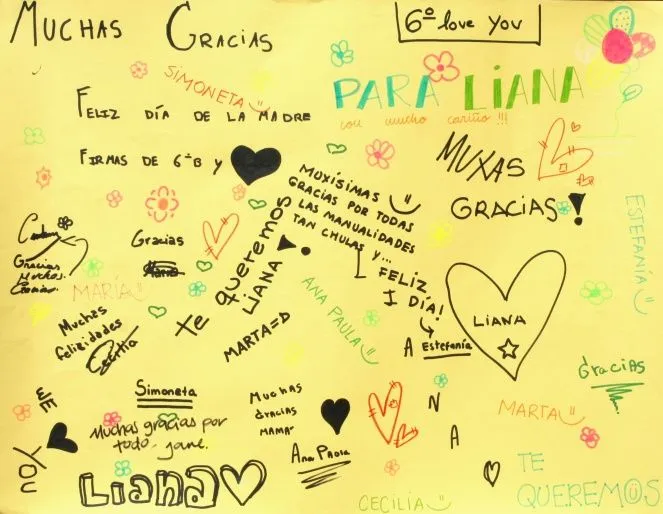 MUCHAS GRACIAS
6º love you
SIMONETA
PARA LIANA
con mucho cariño !!!
FELIZ DÍA DE LA MADRE
FIRMAS DE 6ºB y
MUXAS
GRACIAS!
MUXÍSIMAS
GRACIAS POR TODAS
LAS MANUALIDADES
TAN CHULAS Y...
FELIZ
DÍA!
A Estefanía
ESTEFANÍA
Gracias
Gracias
Muchas
Gracias
MARÍA
te queremos
LIANA!
ANA PAULA
LIANA
Muchas
felizidades
Cecilia
MARTA=D
Gracias
Simoneta
Muchas gracias por
todo
Muchas
gracias
MAMA
Ana Paola
N
A
MARTA
WE
YOU
LIANA
CECILIA
TE
QUEREMOS